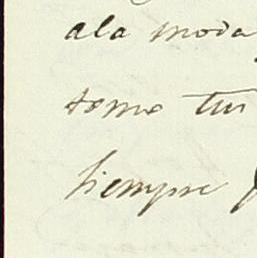 ala moda
tomo tus
siempre